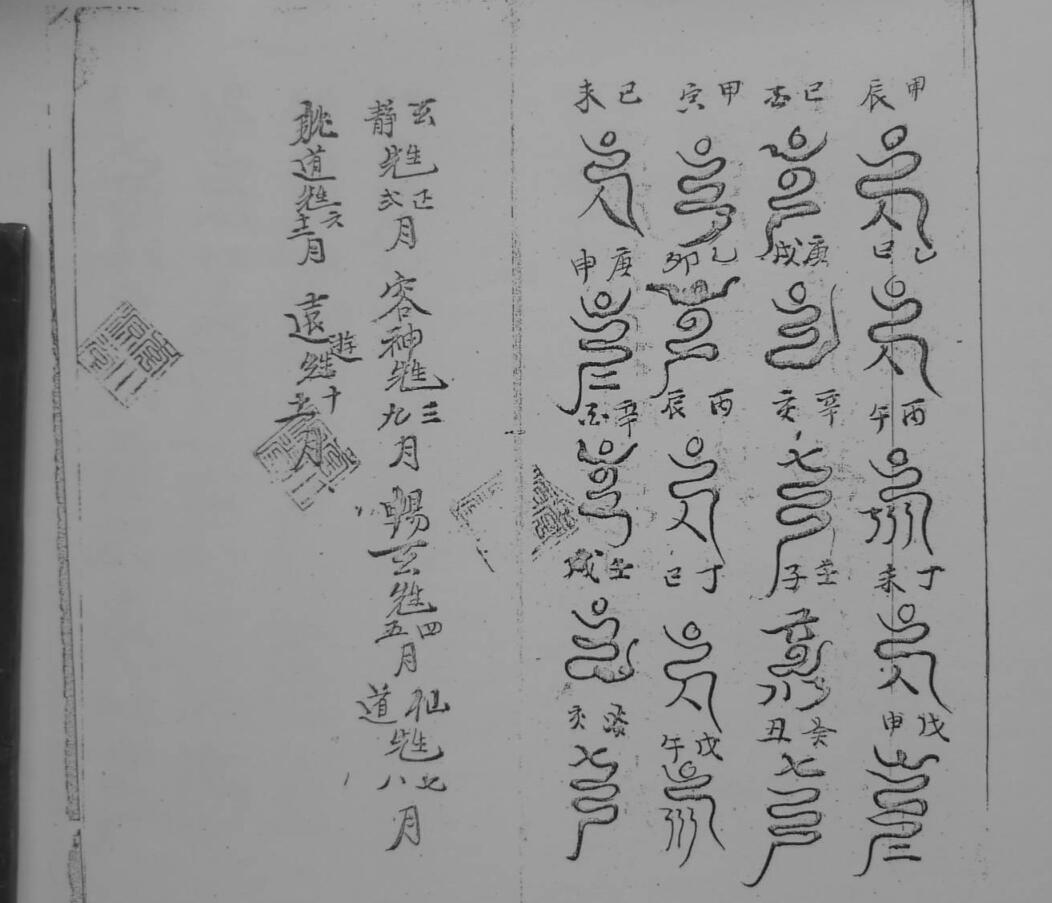 甲辰 乙巳 丙午 丁未 戊申
己酉 庚戌 辛亥 壬子 癸丑
甲寅 乙卯 丙辰 丁巳 戊午
己未 庚申 辛酉 壬戌 癸亥
玄靜先生正弍月 容神先生三九月 暢玄先生四五月 仙道先生七八月
躭道先生六十二月 遠遊先生十十一月